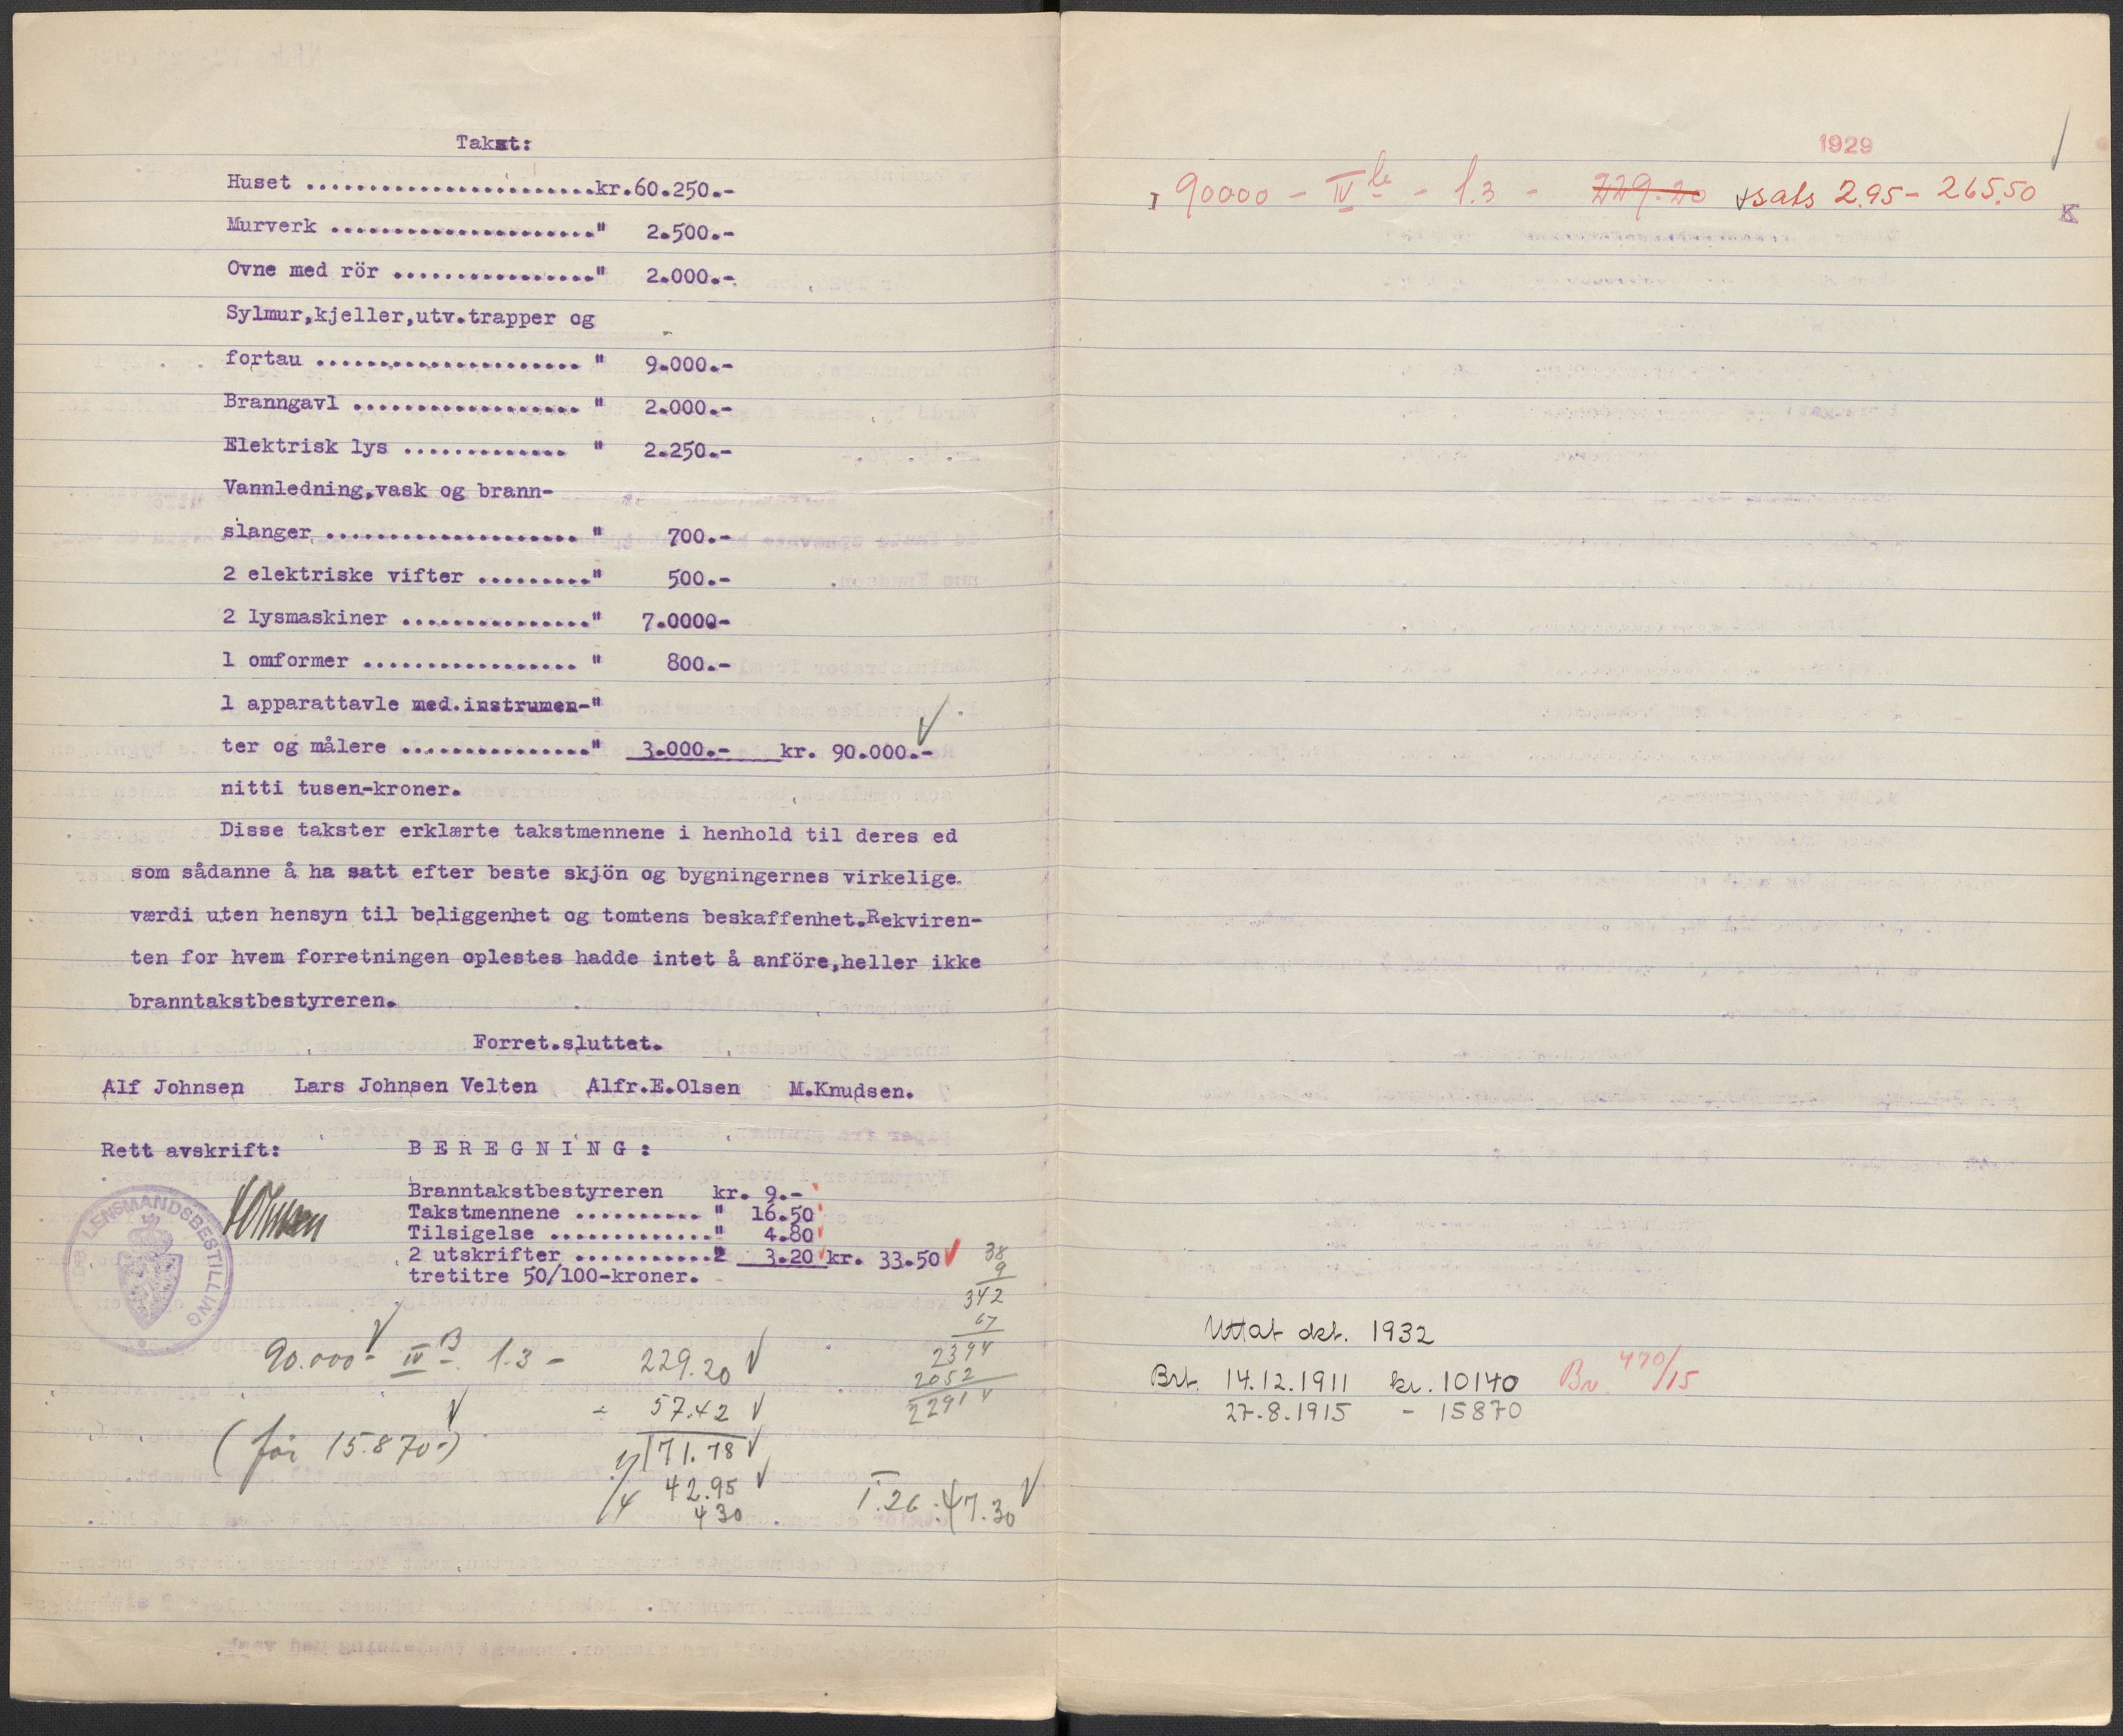 Takst:
Huset .......................kr.60.250.-
Murverk ....................." 2.500.-
Ovne med rör ................" 2.000.-
Sylmur,kjeller,utv.trapper og
fortau ..................... " 9.000.-
Branngavl .................. " 2.000.-
Elektrisk lys ............. " 2.250.-
Vannledning,vask og brann-
slanger .................... " 700.-
2 elektriske vifter ........." 500.-
2 lysmaskiner ..............." 7.0000-
1 omformer ................. " 800.-
1 apparattavle med.instrumen-"
ter og målere ..............." 3.000.- kr. 90.000.-
nitti tusen-kroner.
Disse takster erklærte takstmennene i henhold til deres ed
som sådanne å ha satt efter beste skjön og bygningernes virkelige.
værdi uten hensyn til beliggenhet og tomtens beskaffenhet.Rekviren-
ten for hvem forretningen oplestes hadde intet å anföre,heller ikke
branntakstbestyreren.
Forret.sluttet.
Alf Johnsen Lars Johnsen Velten Alfr.E.Olsen M.Knudsen.
Rett avskrift: B E R E G N I N G :
Branntakstbestyreren kr. 9.-
Takstmennene .......... " 16.50
Tilsigelse ............." 4.80
2 utskrifter ..........." 3.20 kr. 33.50 ✓
tretitre 50/100-kroner.
LENSMANDSBESTILLING
38
9
342
67
2394
2052
22914
90.000- IV B 1.3 - 229.20 ✓
- 57.42 ✓
(før 15.870-) 171.78 ✓
1/4 42.95 ✓
430
I.26.47.30 ✓
1929
I 90000 - IV b - 1.3 - 229.20 sats 2.95 - 265.50
K
Uttat okt. 1932
Brt. 14.12.1911 kr. 10140 Br. 470/15
27.8.1915 - 15870